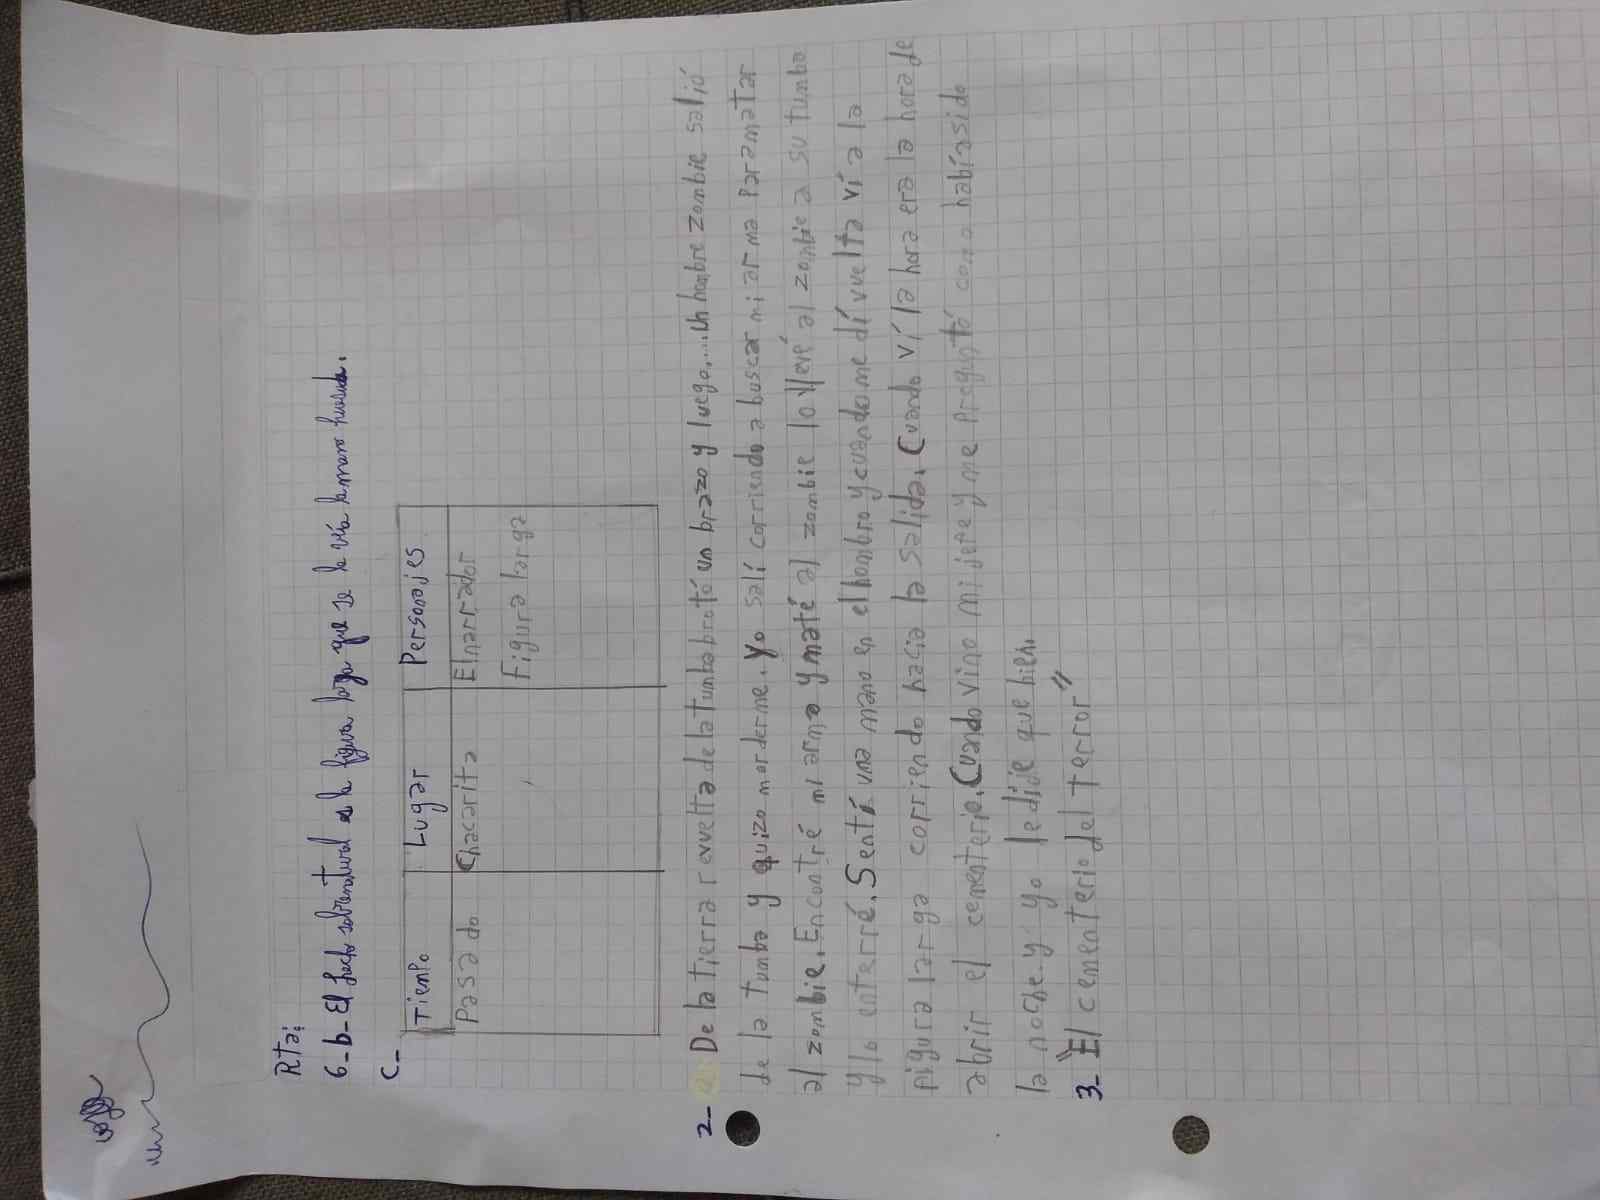 Rta:
6-b-El hecho sobrenatural es la figura larga que se le veía la mano huesuda.
C-
Tiempo Lugar Personajes
Pasado Chacarita El narrador
Figura larga
2- De la tierra revuelta de la tumba brotó un brazo y luego,... un hombre zombie salió
de la tumba y quizo morderme. Yo salí corriendo a buscar mi arma para matar
al zombie. Encontré mi arma y maté al zombie lo llevé al zombie a su tumba
y lo enterré. Sentí una mano en el hombro y cuando me dí vuelta ví a la
figura larga corriendo hacia la salida. Cuando ví la hora era la hora de
abrir el cementerio. Cuando vino mi jefe y me preguntó como había sido
la noche y yo le dije que bien.
3- "El cementerio del terror"